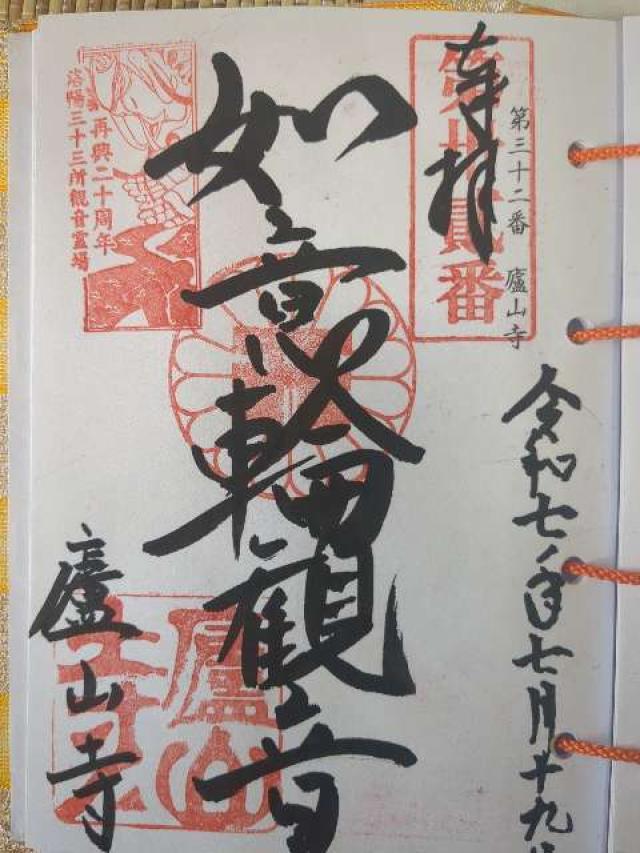 令和七年七月廿九日
第三十二番 廬山寺
奉拝
第卅貳番
如意輪観音
再興二十周年
洛陽三十三所観音霊場
廬山寺
廬山寺